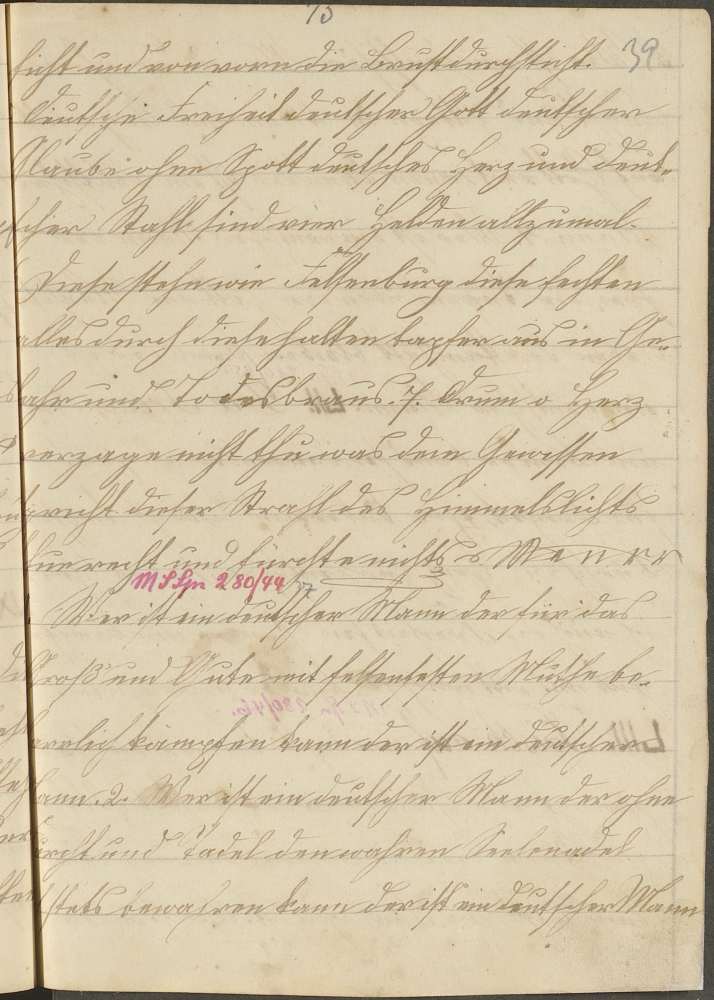 13
39
sicht und von vorn die Brust durchsticht.
Deutsche Freiheit deutscher Gott deutscher
Glaube ohne Spott deutsches Herz und deut-
scher Stahl sind vier Helden allzumal.
Diese stehn wie Felsenburg diese fechten
alles durch diese halten tapfer aus in Ge-
fahr und Todesbraus. 7. Drum o Herz
verzage nicht thu was dein Gewissen
spricht dieser Strahl des Himmelslichts
tue recht und fürchte nichts
MS Spr 280/44
Wer ist ein deutscher Mann der für das
Groß und Gute mit felsenfesten Muthe be-
harrlich kämpfen kann der ist ein deutscher
Mann. 2. Wer ist ein deutscher Mann der ohne
Furcht und Tadel den wahren Seelenadel
stets bewahren kann der ist ein deutscher Mann